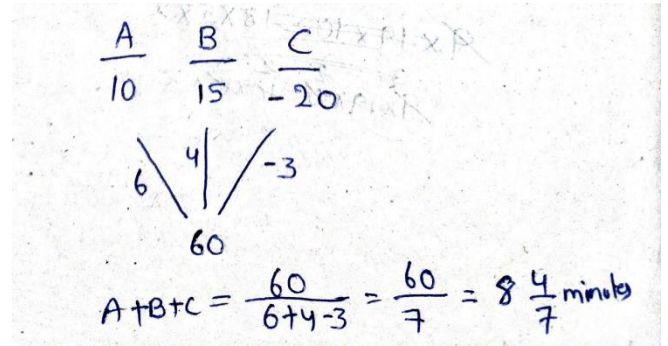 A B C
10 15 -20
6 4 -3
60
A+B+C = 60/(6+4-3) = 60/7 = 8 4/7 minutes